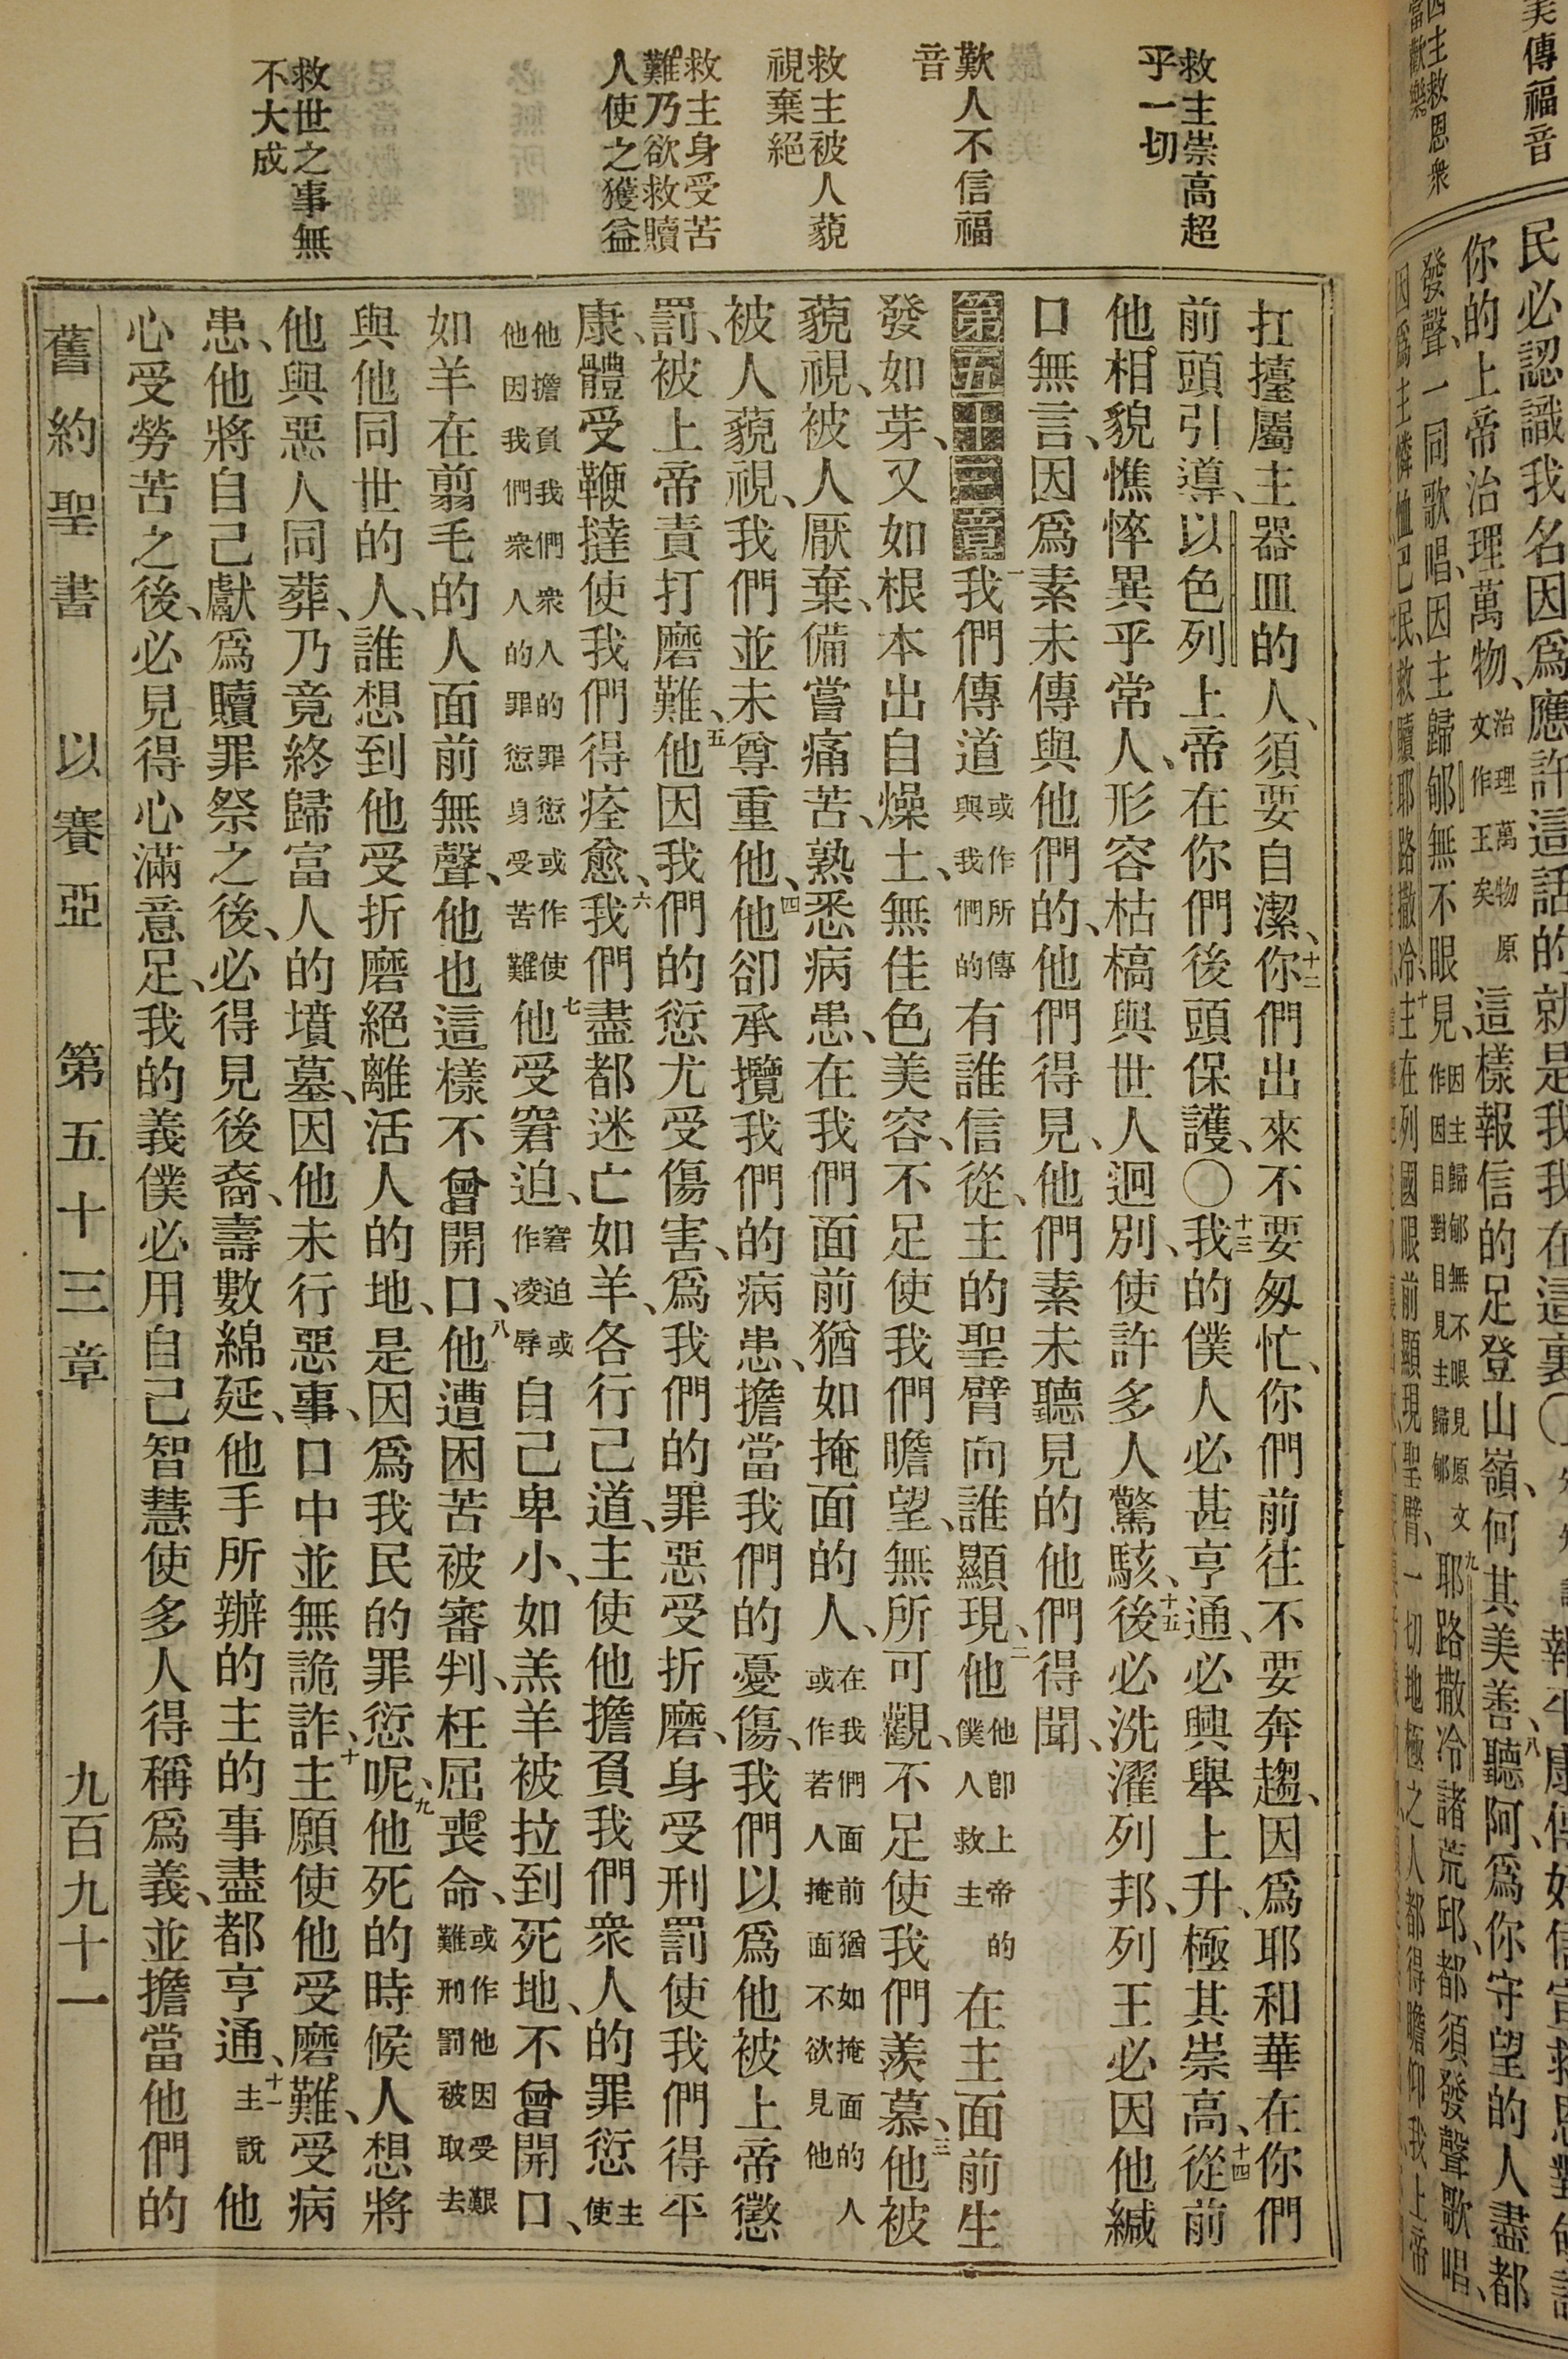 美傳福音
因主救恩衆
當歡樂
民必認識我名因爲應許這話的就是我我在這裏〇
你的上帝治理萬物、治理萬物原文作王矣這樣報信的足登山嶺、何其美善、八聽阿爲你守望的人盡都
發聲、一同歌唱、因主歸郇無不眼見、因主歸郇無不眼見原文作因目對目見主歸郇九耶路撒冷諸荒邱、都須發聲歌唱、
因爲主憐恤己民、救贖耶路撒冷、十主在列國眼前顯現聖臂、一切地極之人都得瞻仰我上帝
救主崇高超
乎一切
歎人不信福
音
救主被人藐
視棄絕
救主身受苦
難乃欲救贖
人使之獲益
救世之事無
不大成
扛擡屬主器皿的人、須要自潔、十二你們出來不要匆忙、你們前往不要奔趨、因爲耶和華在你們
前頭引導、以色列上帝在你們後頭保護、〇十三我的僕人必甚亨通、必興舉上升、極其崇高、十四從前
他相貌憔悴異乎常人、形容枯槁與世人迥別、使許多人驚駭、十五後必洗濯列邦、列王必因他緘
口無言、因爲素未傳與他們的、他們得見、他們素未聽見的他們得聞、
第五十三章一我們傳道或作所傳與我們的有誰信從、主的聖臂向誰顯現、二他他卽上帝的僕人救主在主面前生
發如芽、又如根本出自燥土、無佳色美容、不足使我們瞻望、無所可觀、不足使我們羨慕、三他被
藐視、被人厭棄、備嘗痛苦、熟悉病患、在我們面前猶如掩面的人、在我們面前猶如掩面的人或作若人掩面不欲見他
被人藐視、我們並未尊重他、四他卻承攬我們的病患、擔當我們的憂傷、我們以爲他被上帝懲
罰、被上帝責打磨難、五他因我們的愆尤受傷害、爲我們的罪惡受折磨、身受刑罰使我們得平
康、體受鞭撻使我們得痊愈、六我們盡都迷亡如羊、各行己道、主使他擔負我們衆人的罪愆主使
他擔負我們衆人的罪愆或作使他因我們衆人的罪愆身受苦難七他受窘迫、窘迫或作凌辱自己卑小、如羔羊被拉到死地、不曾開口、
如羊在翦毛的人面前無聲、他也這樣不曾開口、八他遭困苦被審判、枉屈喪命、或作他因受艱難刑罰被取去
與他同世的人、誰想到他受折磨絕離活人的地、是因爲我民的罪愆呢、九他死的時候人想將
他與惡人同葬、乃竟終歸富人的墳墓、因他未行惡事、口中並無詭詐、十主願使他受磨難、受病
患、他將自己獻爲贖罪祭之後、必得見後裔、壽數綿延、他手所辦的主的事盡都亨通、十一主說他
心受勞苦之後、必見得心滿意足、我的義僕必用自己智慧使多人得稱爲義、並擔當他們的
舊約聖書 以賽亞 第五十三章 九百九十一